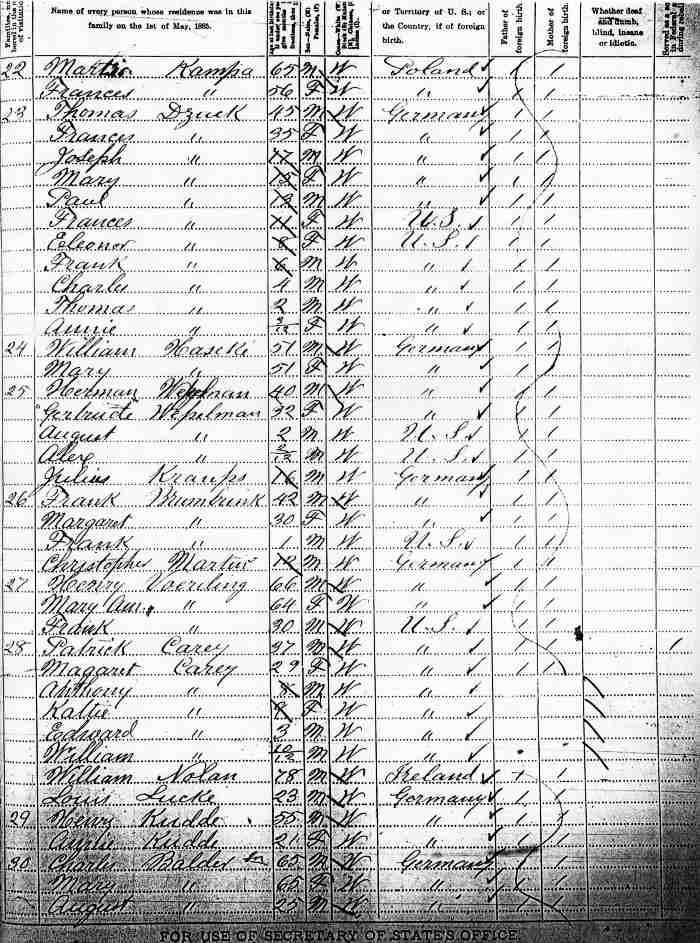 Name of every person whose residence was in this family on the 1st of May, 1885.
or Territory of U. S.; or the Country, if of foreign birth.
Father of foreign birth.
Mother of foreign birth.
Whether deaf and dumb, blind, insane or idiotic.
22 Kampa 65 M W Poland / /
Frances " 56 F W " / /
23 Thomas Dzuck 45 M W Germany / /
Frances " 35 F W " / /
Joseph " 17 M W " / /
Mary " F W " / /
Paul " M W " / /
Frances " 11 F W U.S. / /
Eeleonor " 8 F W U.S. / /
Frank " 6 M W " / /
Charles " 4 M W " / /
Thomas " 2 M W " / /
Annie " F W " / /
24 William Haseke 51 M W Germany / /
Mary " 51 F W " / /
25 Herman 40 M W " / /
Gertrude 32 F W " / /
August " 2 M W U.S. / /
Alex " M W U.S. / /
Julius 16 M W Germany / /
26 Frank Brumbrink 42 M W " / /
Margaret " 30 F W " / /
Frank " 1 M W U.S. / /
Christopher Martin M W Germany / /
27 Henry Voerding 66 M W " / /
Mary Ann " 64 F W " / /
Frank " 30 M W U.S. / /
28 Patrick Carey 37 M W " / / /
Magaret Carey 29 F W " / /
Anthony " 8 M W "
Kattie " F W "
Edward " 3 M W "
William " 10/12 M W "
William Nolan 78 M W Ireland / /
Louis Lucke 23 M W Germany / /
29 Henry Kudde 55 M W " / /
Annie Kudde F W " / /
30 Charles Baldes Sr 65 M W Germany / /
Mary " 65 F W " / /
August " 25 M W " / /
FOR USE OF SECRETARY OF STATE'S OFFICE